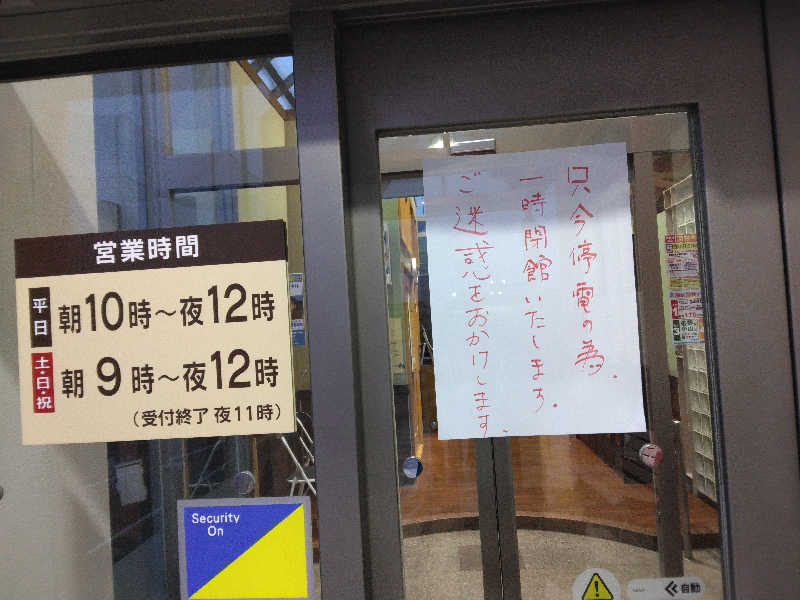 営業時間
平日 朝10時～夜12時
土・日・祝 朝9時～夜12時
（受付終了 夜11時）
只今停電の為、
一時閉館いたします。
ご迷惑をおかけします。
Security
On
自動